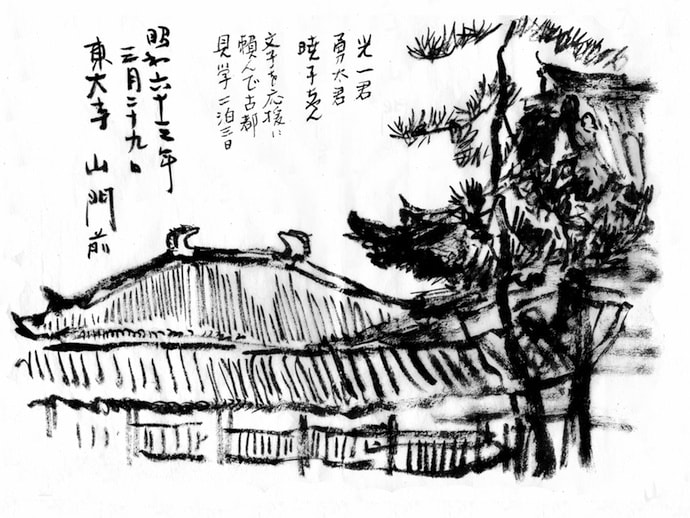 光一君
勇太君
暁子ちゃん
文子を応援に
頼んで古都
見学二泊三日
昭和六十三年
三月二十九日
東大寺 山門前